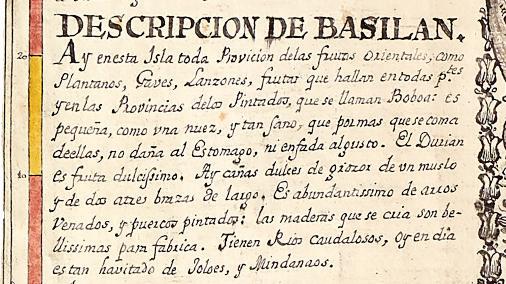 20
DESCRIPCION DE BASILAN.
Ay enesta Isla toda Provicion delas frutas Orientales, como
Plantanos, Gaves, Lanzones, frutas que hallan entodas ptes
y en las Provincias delos Pintados, que se llaman Boboa: es
pequeña, como vna nuez, y tan sano, que pormas que se coma
deellas, no daña al Estomago, ni enfada algusto. El Durian
10
es fruta dulcissimo. Ay cañas dulces de grozor de un muslo
y de dos atres brazas de largo. Es abundantissimo de arros
Venados, y puercos pintados: las maderas que se cria son be-
llissimas para fabrica. Tienen Rios caudalosos, oy en dia
estan havitado de Joloes, y Mindanaos.